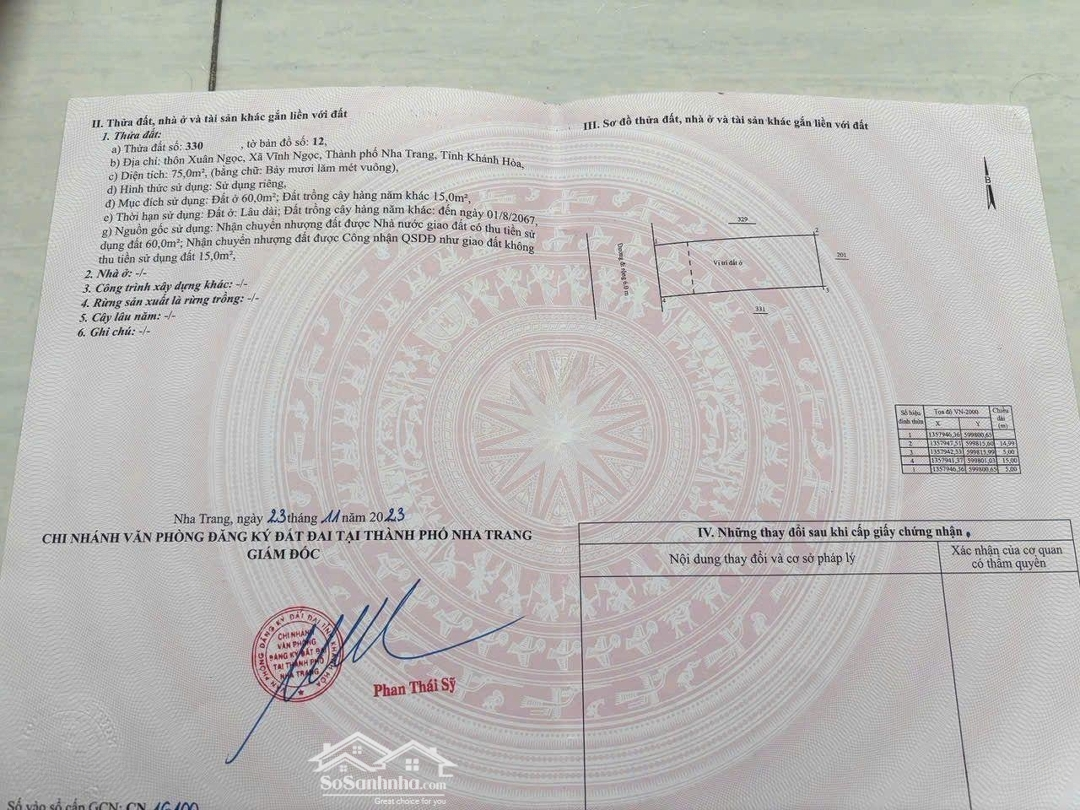 II. Thửa đất, nhà ở và tài sản khác gắn liền với đất
1. Thửa đất:
a) Thửa đất số: 330 , tờ bản đồ số: 12,
b) Địa chỉ: thôn Xuân Ngọc, Xã Vĩnh Ngọc, Thành phố Nha Trang, Tỉnh Khánh Hòa,
c) Diện tích: 75,0m², (bằng chữ: Bảy mươi lăm mét vuông),
d) Hình thức sử dụng: Sử dụng riêng,
đ) Mục đích sử dụng: Đất ở 60,0m²; Đất trồng cây hàng năm khác 15,0m²,
e) Thời hạn sử dụng: Đất ở: Lâu dài; Đất trồng cây hàng năm khác: đến ngày 01/8/2067,
g) Nguồn gốc sử dụng: Nhận chuyển nhượng đất được Nhà nước giao đất có thu tiền sử
dụng đất 60,0m²; Nhận chuyển nhượng đất được Công nhận QSDĐ như giao đất không
thu tiền sử dụng đất 15,0m²,
2. Nhà ở: -/-
3. Công trình xây dựng khác: -/-
4. Rừng sản xuất là rừng trồng: -/-
5. Cây lâu năm: -/-
6. Ghi chú: -/-
Nha Trang, ngày 23 tháng 11 năm 2023
CHI NHÁNH VĂN PHÒNG ĐĂNG KÝ ĐẤT ĐAI TẠI THÀNH PHỐ NHA TRANG
GIÁM ĐỐC
VĂN PHÒNG ĐĂNG KÝ ĐẤT ĐAI TỈNH KHÁNH HÒA
CHI NHÁNH
VĂN PHÒNG
ĐĂNG KÝ ĐẤT ĐAI
TẠI THÀNH PHỐ
NHA TRANG
Phan Thái Sỹ
Số vào sổ cấp GCN: CN 16100
III. Sơ đồ thửa đất, nhà ở và tài sản khác gắn liền với đất
B
329
1
2
Đường đi rộng 6.0 m
Vị trí đất ở
201
4
3
331
Số hiệu đỉnh thửa Tọa độ VN-2000 Chiều dài (m)
X Y
1 1357946,36 599800,65
2 1357947,51 599815,60 14,99
3 1357942,53 599815,99 5,00
4 1357941,37 599801,03 15,00
1 1357946,36 599800,65 5,00
IV. Những thay đổi sau khi cấp giấy chứng nhận
Nội dung thay đổi và cơ sở pháp lý
Xác nhận của cơ quan
có thẩm quyền
SoSanhnha.com
Great choice for you